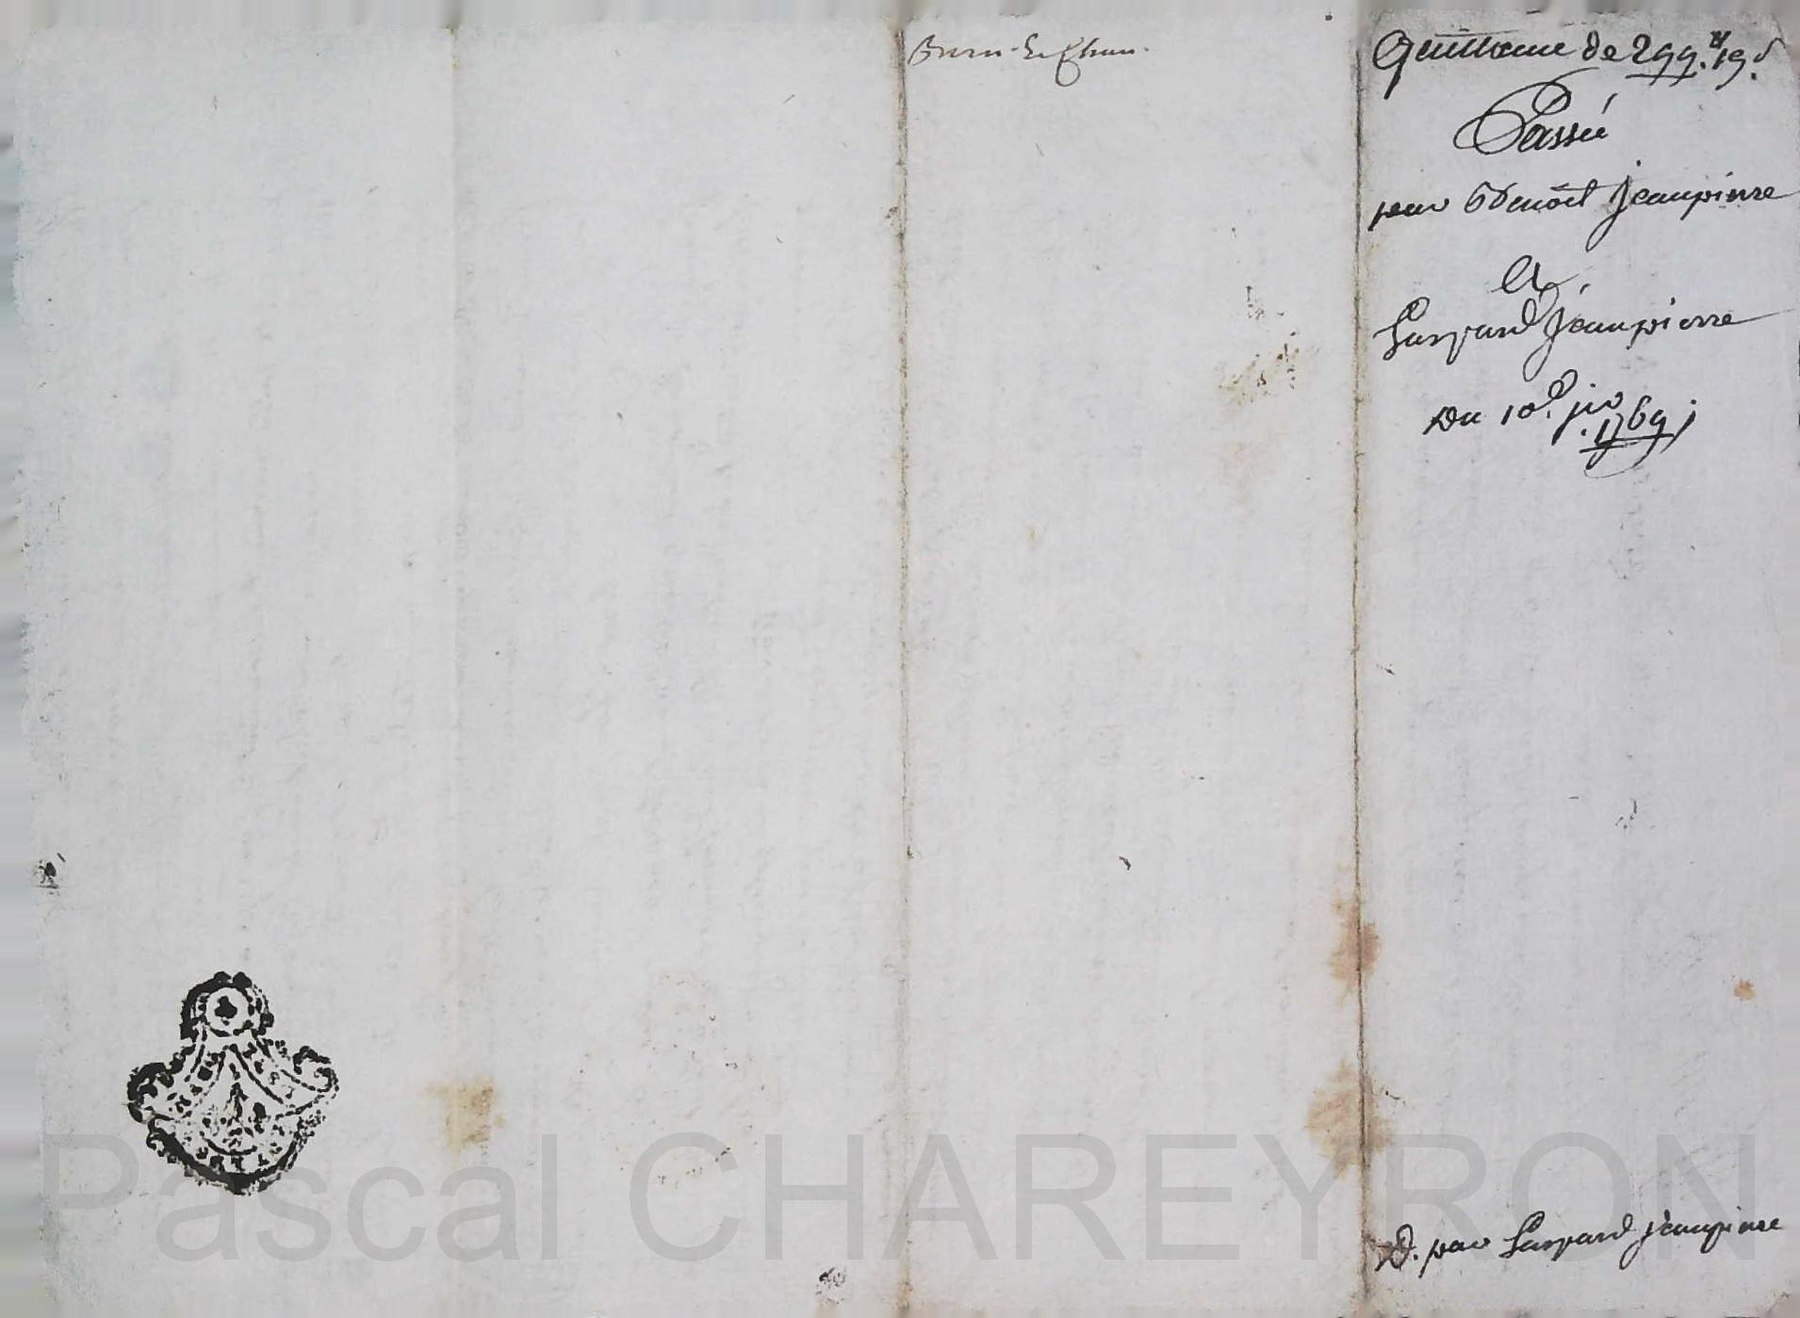 Quittance de 299.# 19.s
Passée
par Benoît Jeanpierre
A
Gaspard Jeanpierre
Du 10e. jer
1769
p. par Gaspard Jeanpierre
Pascal CHAREYRON